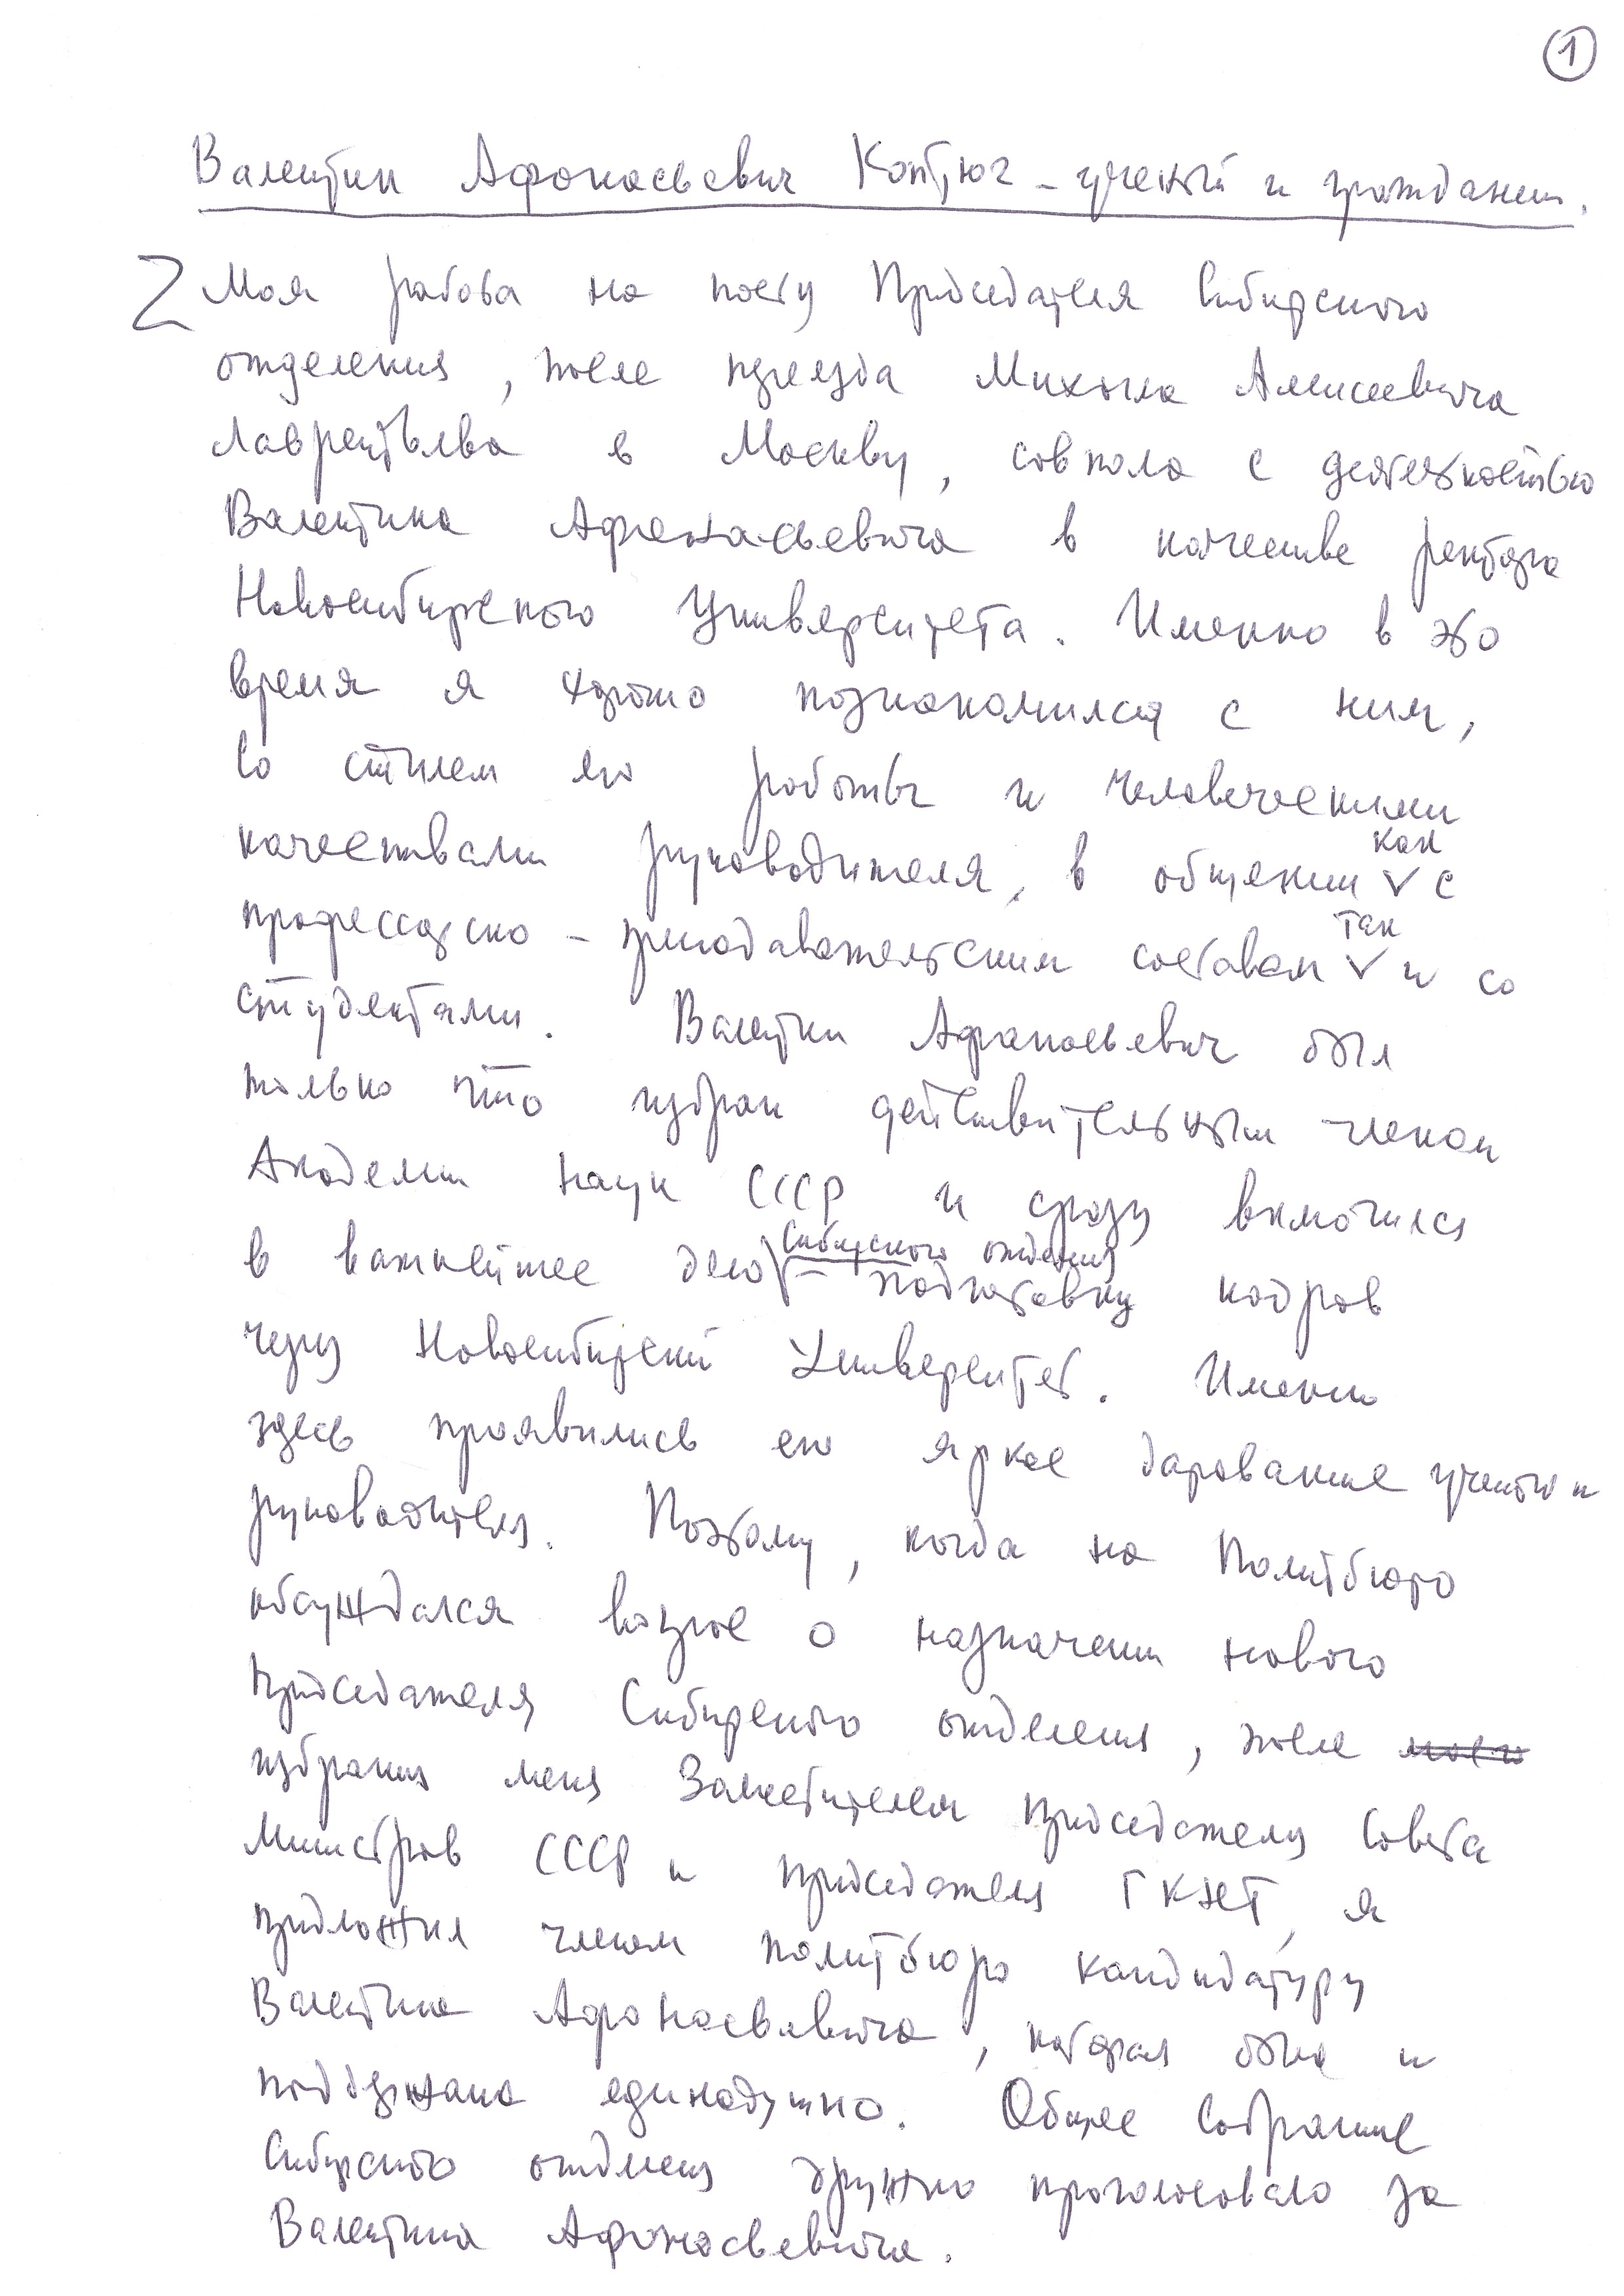 1
Валентин Афонасьевич Коптюг – ученый и гражданин.
Моя работа на посту Председателя Сибирского
отделения, после приезда Михаила Алексеевича
Лаврентьева в Москву, совпала с деятельностью
Валентина Афанасьевича в качестве ректора
Новосибирского Университета. Именно в это
время я хорошо познакомился с ним,
со стилем его работы и человеческими
качествами руководителя, в общении как с
профессорско – преподавательским составом так и со
студентами. Валентин Афанасьевич был
только что избран действительным членом
Академии наук СССР и сразу включился
в важнейшее дело Сибирского отделения – подготовку кадров
через Новосибирский Университет. Именно
здесь проявились его яркое дарование ученого и
руководителя. Поэтому, когда на Политбюро
обсуждался вопрос о назначении нового
Председателя Сибирского отделения, после моего
избрания меня Заместителем Председателя Совета
Министров СССР и председателя ГКНТ, я
предложил членам политбюро кандидатуру
Валентина Афонасьевича, которая была и
поддержана единодушно. Общее собрание
Сибирского отделения дружно проголосовало за
Валентина Афонасьевича.